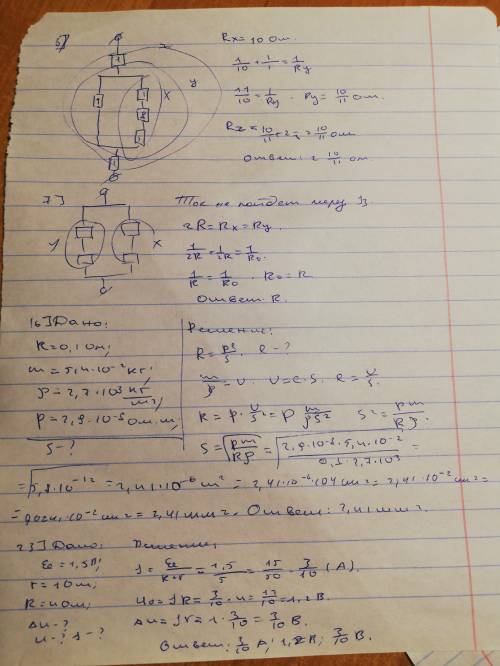 6]
Rx = 10 Ом.
1/10 + 1/1 = 1/Ry
11/10 = 1/Ry. Ry = 10/11 Ом.
Rz = 10/11 + 2 = 2 10/11 Ом
Ответ: 2 10/11 Ом
z
y
x
1
1
1
8
1
1
7]
Ток не пойдет через
2R = Rx = Ry.
1/2R + 1/2R = 1/R0.
1/R = 1/R0. R0 = R
Ответ R.
y
x
16] Дано:
R = 0,1 Ом;
m = 5,4·10⁻² кг;
ρ = 2,7·10³ кг/м³;
ρ = 2,9·10⁻⁸ Ом.м;
S - ?
Решение:
R = ρl/S. l - ?
m/ρ = V. V = l·S. l = V/S.
R = ρ · V/S² = ρ m/ρS² S² = ρm/Rρ.
S = √ρm/Rρ = √2,9·10⁻⁸·5,4·10⁻²/0,1·2,7·10³ =
= √5,8·10⁻¹² = 2,41·10⁻⁶ м² = 2,41·10⁻⁶·10⁴ см² = 2,41·10⁻² см² =
= 0,0241 см² = 2,41 мм². Ответ: 2,41 мм².
23] Дано:
Ee = 1,5 В;
r = 1 Ом;
R = 4 Ом;
Δu - ?
u - ? I - ?
Решение;
I = Ee/R+r = 1,5/5 = 15/50 = 3/10 (А).
U0 = IR = 3/10 · 4 = 12/10 = 1,2 В.
Δu = Ir = 1 · 3/10 = 3/10 В.
Ответ: 3/10 А; 1,2 В; 3/10 В.